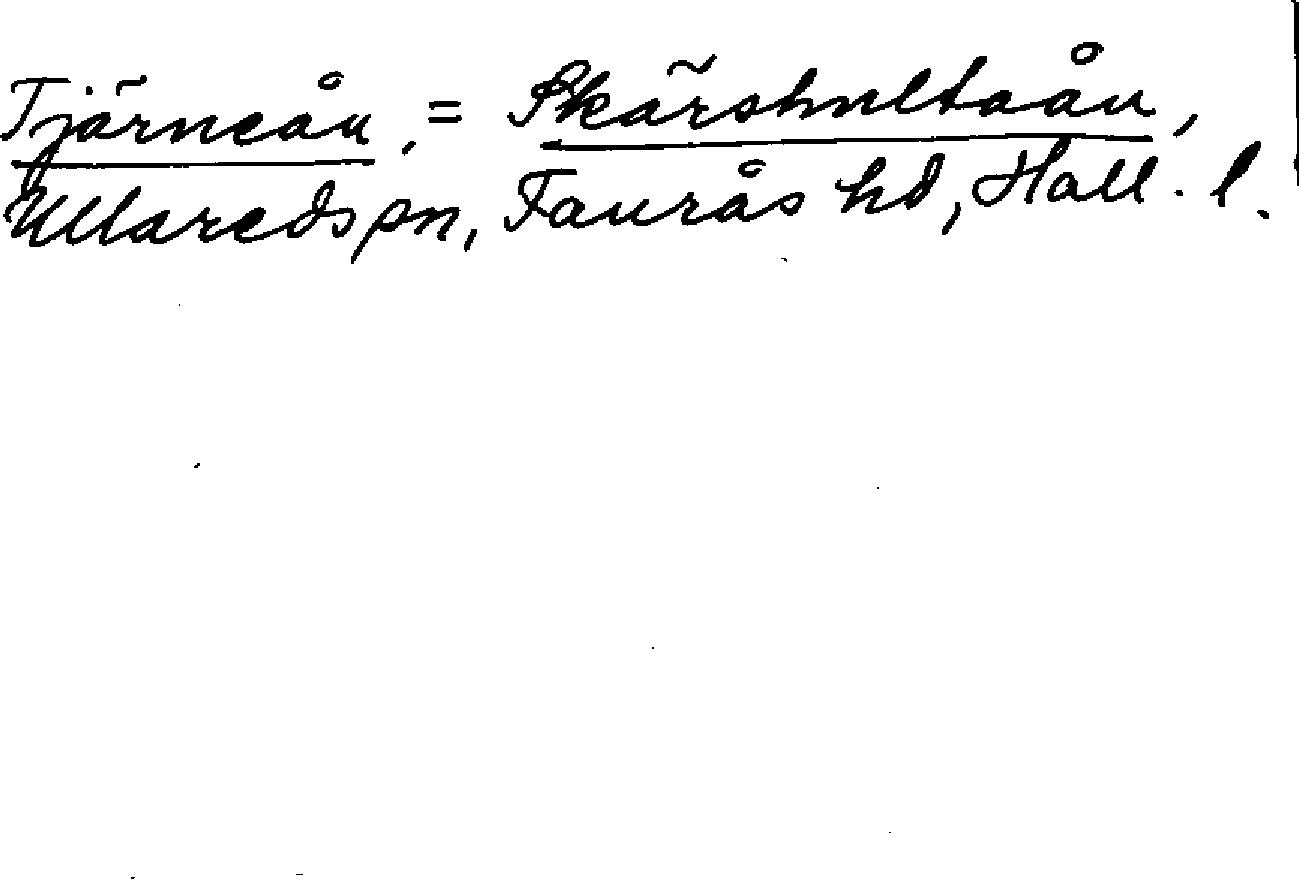 Tjärneån, = Skärshultaån,
Ullareds sn, Faurås hd, Hall. l.